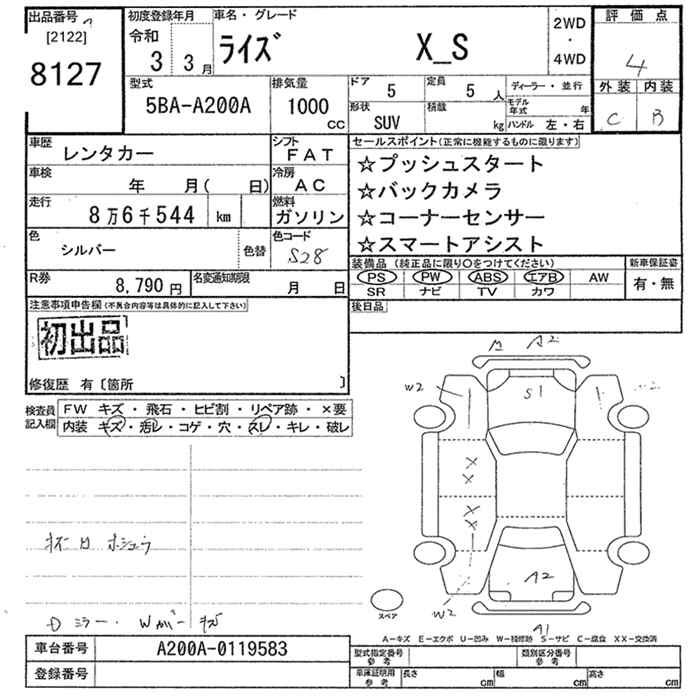 出品番号
[2122]
8127
初度登録年月
令和
3 3月
車名・グレード
ライズ X_S
2WD
・
4WD
評価点
4
外装 内装
C B
型式
5BA-A200A
排気量
1000
CC
ドア
5
定員
5 人
形状
SUV
積載
kg
ディーラー・並行
モデル年式 年
ハンドル 左・右
車歴
レンタカー
シフト
FAT
車検
年 月( 日)
冷房
AC
走行
8万6千544 km
燃料
ガソリン
色
シルバー
色替
色コード
S28
R券
8,790円
名変通知期限
月 日
セールスポイント(正常に機能するものに限ります)
☆プッシュスタート
☆バックカメラ
☆コーナーセンサー
☆スマートアシスト
装備品(純正品に限り〇をつけてください)
PS PW ABS エアB AW
SR ナビ TV カワ
新車保証書
有・無
後日品
注意事項申告欄(不具合内容等は具体的に記入して下さい)
初出品
修復歴 有〔箇所 〕
検査員記入欄
FW キズ・飛石・ヒビ割・リペア跡・×要
内装 キズ・汚レ・コゲ・穴・スレ・キレ・破レ
Dミラー・Wカバーキズ
A2
W2
S1
A2
W2
A1
スペア
A-キズ E-エクボ U-凹み W-補修跡 S-サビ C-腐食 XX-交換済
車台番号
A200A-0119583
登録番号
型式指定番号
参考
類別区分番号
参考
車庫証明用
参考
長さ cm
幅 cm
高さ cm